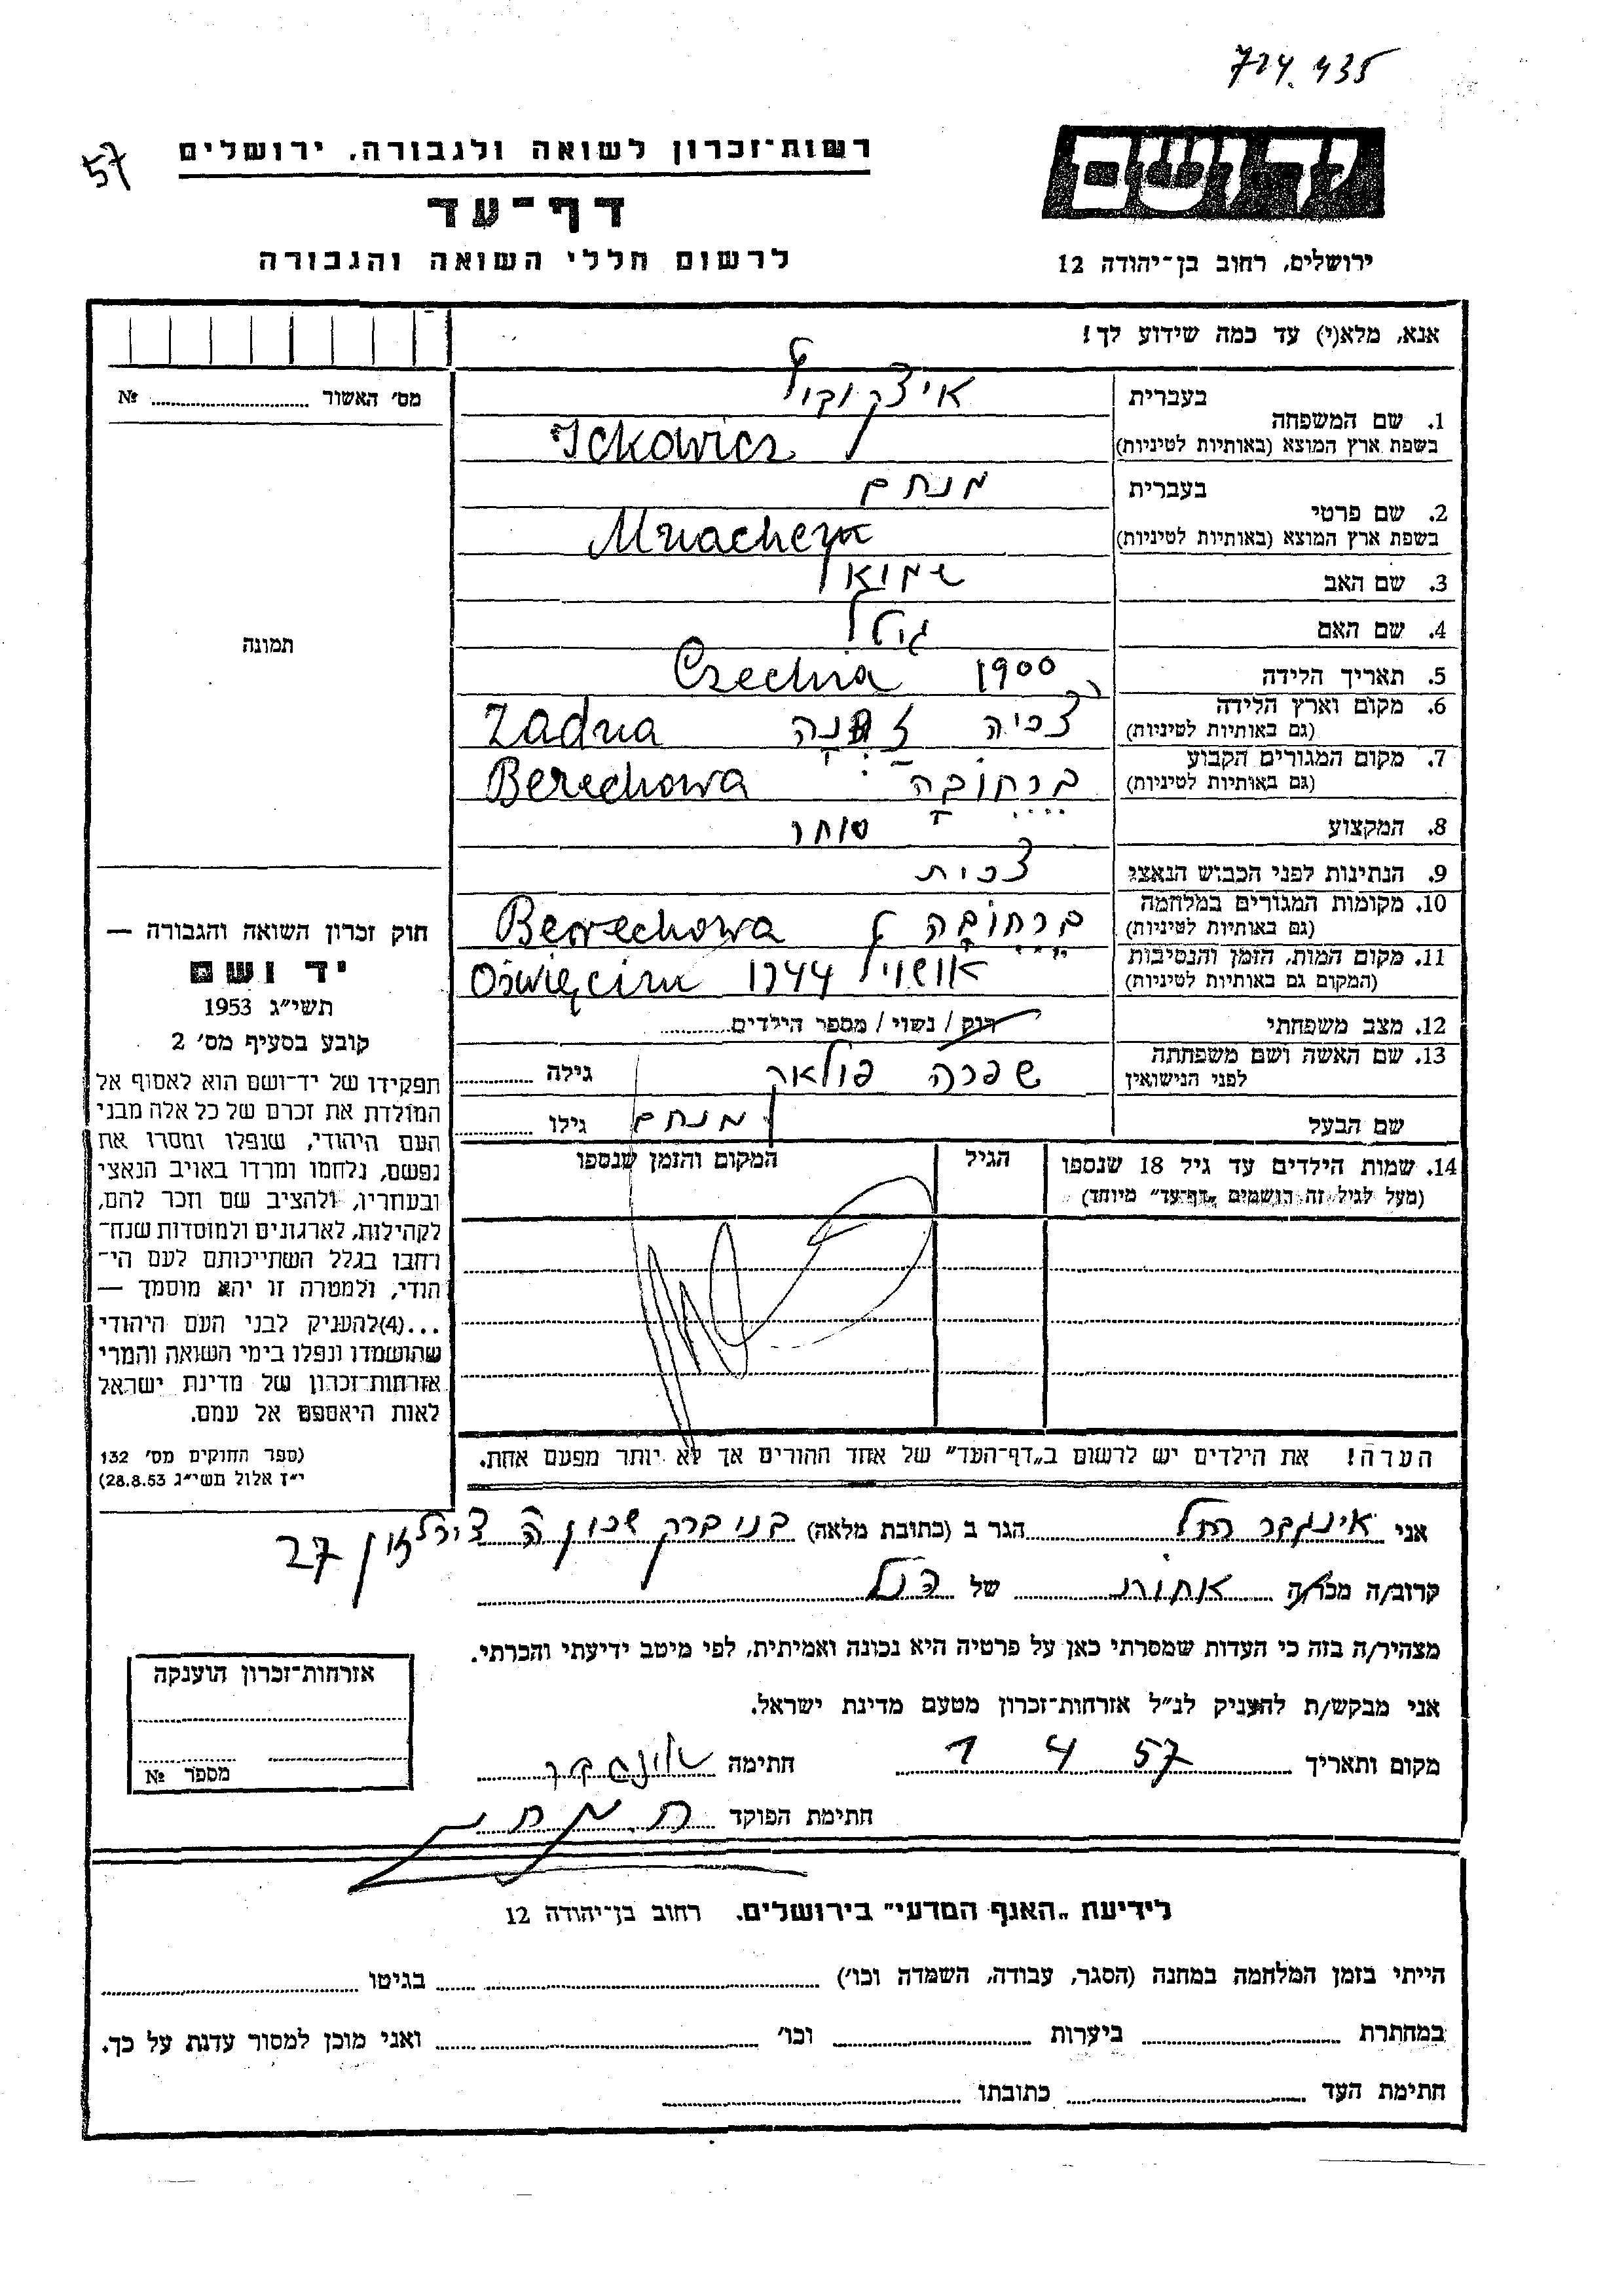 724.435
57
רשות־זכרון לשואה ולגבורה, ירושלים
דף־עד
לרשום חללי השואה והגבורה
יד ושם
ירושלים, רחוב בן־יהודה 12
אנא, מלא(י) עד כמה שידוע לך!
מס׳ האשור № 
תמונה
1. שם המשפחה בעברית איצקוביץ
בשפת ארץ המוצא (באותיות לטיניות) Ickowicz
2. שם פרטי בעברית מנחם
בשפת ארץ המוצא (באותיות לטיניות)
3. שם האב שמואל
4. שם האם גיטל
5. תאריך הלידה 1900 Czechia
6. מקום וארץ הלידה צכיה Zadna
(גם באותיות לטיניות)
7. מקום המגורים הקבוע ברחובה Berechowa
(גם באותיות לטיניות)
8. המקצוע סוחר
9. הנתינות לפני הכבוש הנאצי צכית
10. מקומות המגורים במלחמה ברחובה Berechowa
(גם באותיות לטיניות)
11. מקום המות, הזמן והנסיבות אושויץ 1944 Oświęcim
(המקום גם באותיות לטיניות)
12. מצב משפחתי רוק / נשוי / מספר הילדים
13. שם האשה ושם משפחתה לפני הנישואין שפרה פולאק גילה
שם הבעל מנחם גילו
14. שמות הילדים עד גיל 18 שנספו
(מעל לגיל זה רושמים „דף־עד” מיוחד)
הגיל
המקום והזמן שנספו
הערה! את הילדים יש לרשום ב„דף־העד” של אחד ההורים אך לא יותר מפעם אחת.
חוק זכרון השואה והגבורה —
יד ושם
תשי״ג 1953
קובע בסעיף מס׳ 2
תפקידו של יד־ושם הוא לאסוף אל
המולדת את זכרם של כל אלה מבני
העם היהודי, שנפלו ומסרו את
נפשם, נלחמו ומרדו באויב הנאצי
ובעוזריו, ולהציב שם וזכר להם,
לקהילות, לארגונים ולמוסדות שנח־
רחבו בגלל השתייכותם לעם הי־
הודי, ולמטרה זו יהא מוסמך —
...(4)להעניק לבני העם היהודי
שהושמדו ונפלו בימי השואה והמרי
אזרחות־זכרון של מדינת ישראל
לאות היאספם אל עמם.
(ספר החוקים מס׳ 132
י״ז אלול תשי״ג 28.8.53)
אני אינגבר רחל הגר ב (כתובת מלאה) בני ברק שכון ה 27
קרוב/ה מכר/ה אחות של הנ״ל
מצהיר/ה בזה כי העדות שמסרתי כאן על פרטיה היא נכונה ואמיתית, לפי מיטב ידיעתי והכרתי.
אני מבקש/ת להעניק לנ״ל אזרחות־זכרון מטעם מדינת ישראל.
מקום ותאריך 1 4 57 חתימה אינגבר
חתימת הפוקד
אזרחות־זכרון הוענקה
מספר №
לידיעת „האגף המדעי” בירושלים. רחוב בן־יהודה 12
הייתי בזמן המלחמה במחנה (הסגר, עבודה, השמדה וכו׳) בגיטו
במחתרת ביערות וכו׳ ואני מוכן למסור עדות על כך.
חתימת העד כתובתו